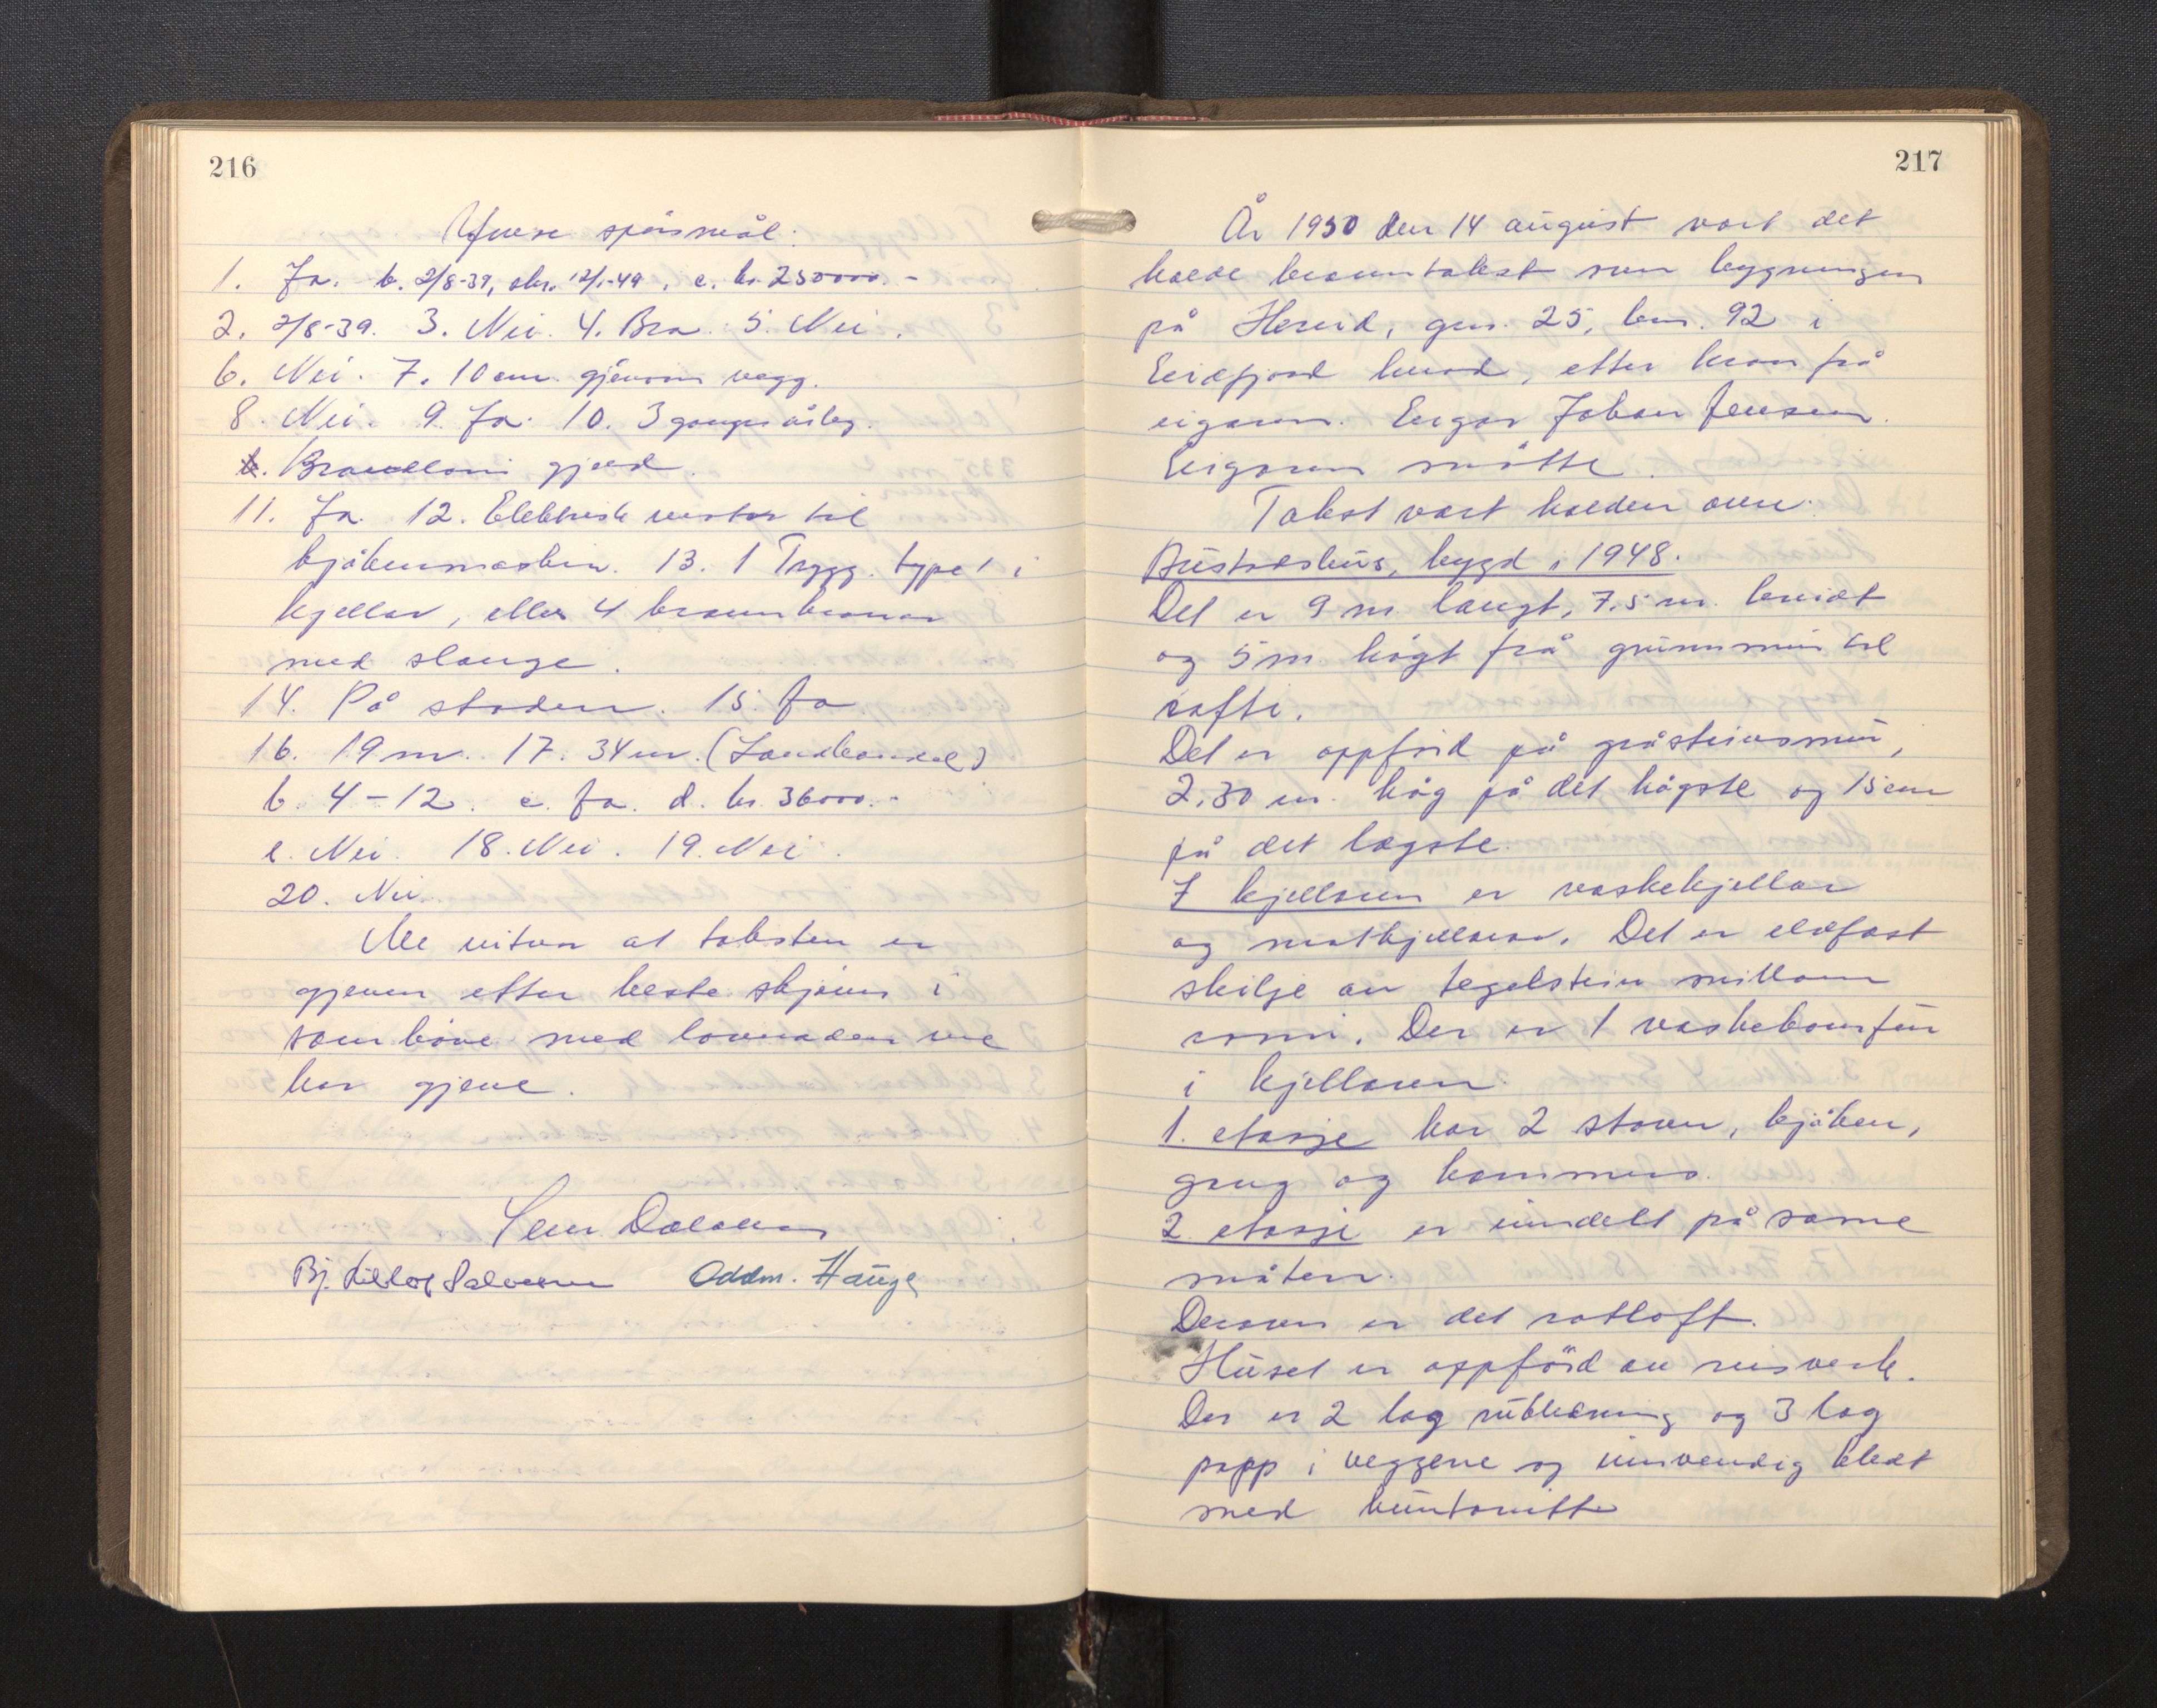 216
Ymse spörsmål:
1. Ja. b. 2/8-39, 12/1-49, c. kr. 250000.-
2. 2/8-39. 3. Nei. 4. Bra. 5. Nei.
6. Nei. 7. 10 cm. gjenom vegg.
8. Nei. 9. Ja. 10. 3 gonger årleg.
b. Branntloni gjeld.
11. Ja. 12. Elektrisk motor til
kjökenmaskin. 13. 1 Trygg. type 1 i
kjellar, elles 4 brannkranar
med slange.
14. På staden. 15. Ja
16. 19 m. 17. 34 m. (Landhandel)
b. 4-12. c. Ja. d. kr. 36000.-
e. Nei. 18. Nei. 19. Nei.
20. Nei.
Me vitnar at taksten er
gjeven etter beste skjönn i
samhöve med lovnaden me
har gjeve.
Bj. Lillof Halvorsen Oddm. Hauge
217
År 1950 den 14 august vart det
halde branntakst over bygningen
på Hereid, gnr. 25, bnr. 92 i
Eidfjord herad, etter krav frå
eigaren. Eigar Johan Jensen.
Eigaren mötte.
Takst vart halden over:
Bustadshus, bygd i 1948.
Det er 9 m langt, 7,5 m. breidt
og 5 m högt frå grunnmur til
rafti.
Det er oppförd på gråsteinsmur,
2,30 m. høg på det högste og 15 cm
på det lægste.
I kjellaren er vaskekjellar
og matkjellarar. Det er eldfast
skilje av tegelstein millom
romi. Der er 1 vaskekomfür
i kjellaren.
1. etasje har 2 stover, kjöken,
gang og kammers.
2. etasje er inndelt på same
måten.
Derover er det rotloft.
Huset er oppförd av reisverk.
Der er 2 lag rubledning og 3 lag
papp i veggene og innvendig kledt
med huntonitt